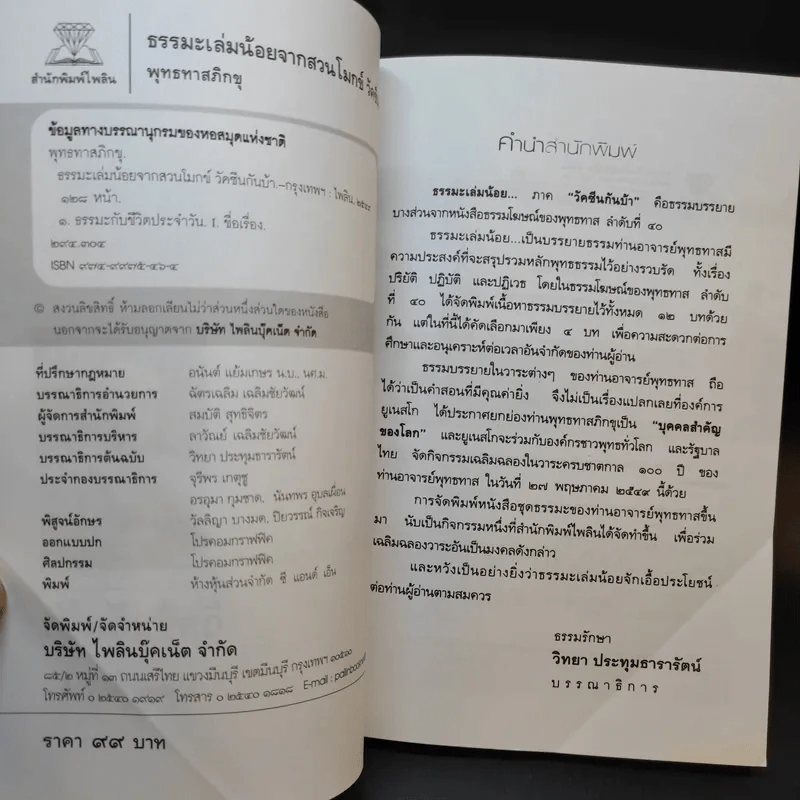 สำนักพิมพ์ไพลิน
ธรรมะเล่มน้อยจากสวนโมกข์
พุทธทาสภิกขุ
ข้อมูลทางบรรณานุกรมของหอสมุดแห่งชาติ
พุทธทาสภิกขุ.
ธรรมะเล่มน้อยจากสวนโมกข์ วัคซีนกันบ้า.–กรุงเทพฯ : ไพลิน,
๑๒๘ หน้า.
๑. ธรรมะกับชีวิตประจำวัน. I. ชื่อเรื่อง.
๒๙๔.๓๐๔
ISBN ๙๗๔-๙๙๗๕-๔๖-๔
© สงวนลิขสิทธิ์ ห้ามลอกเลียนไม่ว่าส่วนหนึ่งส่วนใดของหนังสือ
นอกจากจะได้รับอนุญาตจาก บริษัท ไพลินบุ๊คเน็ต จำกัด
ที่ปรึกษากฎหมาย อนันต์ แย้มเกษร น.บ., นศ.ม.
บรรณาธิการอำนวยการ ฉัตรเฉลิม เฉลิมชัยวัฒน์
ผู้จัดการสำนักพิมพ์ สมบัติ สุทธิจิตร
บรรณาธิการบริหาร ลาวัณย์ เฉลิมชัยวัฒน์
บรรณาธิการต้นฉบับ วิทยา ประทุมธารารัตน์
ประจำกองบรรณาธิการ จุรีพร เกตุชู
อรอุมา กุมชาด. นันทพร อุบลเผื่อน
พิสูจน์อักษร วัลลิญา บางมด. ปิยวรรณ์ กิจเจริญ
ออกแบบปก โปรคอมกราฟฟิค
ศิลปกรรม โปรคอมกราฟฟิค
พิมพ์ ห้างหุ้นส่วนจำกัด ซี แอนด์ เอ็น
จัดพิมพ์/จัดจำหน่าย
บริษัท ไพลินบุ๊คเน็ต จำกัด
๘๕/๒ หมู่ที่ ๑๓ ถนนเสรีไทย แขวงมีนบุรี เขตมีนบุรี กรุงเทพฯ ๑๐๕๑๐
โทรศัพท์ ๐ ๒๕๔๐ ๑๙๑๙ โทรสาร ๐ ๒๕๔๐ ๑๘๑๘ E-mail :
ราคา ๙๙ บาท
คำนำสำนักพิมพ์
ธรรมะเล่มน้อย... ภาค "วัคซีนกันบ้า" คือธรรมบรรยาย
บางส่วนจากหนังสือธรรมโฆษณ์ของพุทธทาส ลำดับที่ ๔๐
ธรรมะเล่มน้อย...เป็นบรรยายธรรมท่านอาจารย์พุทธทาสมี
ความประสงค์ที่จะสรุปรวมหลักพุทธธรรมไว้อย่างรวบรัด ทั้งเรื่อง
ปริยัติ ปฏิบัติ และปฏิเวธ โดยในธรรมโฆษณ์ของพุทธทาส ลำดับ
ที่ ๔๐ ได้จัดพิมพ์เนื้อหาธรรมบรรยายไว้ทั้งหมด ๑๒ บทด้วย
กัน แต่ในที่นี้ได้คัดเลือกมาเพียง ๔ บท เพื่อความสะดวกต่อการ
ศึกษาและอนุเคราะห์ต่อเวลาอันจำกัดของท่านผู้อ่าน
ธรรมบรรยายในวาระต่างๆ ของท่านอาจารย์พุทธทาส ถือ
ได้ว่าเป็นคำสอนที่มีคุณค่ายิ่ง จึงไม่เป็นเรื่องแปลกเลยที่องค์การ
ยูเนสโก ได้ประกาศยกย่องท่านพุทธทาสภิกขุเป็น "บุคคลสำคัญ
ของโลก" และยูเนสโกจะร่วมกับองค์กรชาวพุทธทั่วโลก และรัฐบาล
ไทย จัดกิจกรรมเฉลิมฉลองในวาระครบชาตกาล ๑๐๐ ปี ของ
ท่านอาจารย์พุทธทาส ในวันที่ ๒๗ พฤษภาคม ๒๕๔๙ นี้ด้วย
การจัดพิมพ์หนังสือชุดธรรมะของท่านอาจารย์พุทธทาสขึ้น
มา นับเป็นกิจกรรมหนึ่งที่สำนักพิมพ์ไพลินได้จัดทำขึ้น เพื่อร่วม
เฉลิมฉลองวาระอันเป็นมงคลดังกล่าว
และหวังเป็นอย่างยิ่งว่าธรรมะเล่มน้อยจักเอื้อประโยชน์
ต่อท่านผู้อ่านตามสมควร
ธรรมรักษา
วิทยา ประทุมธารารัตน์
บรรณาธิการ